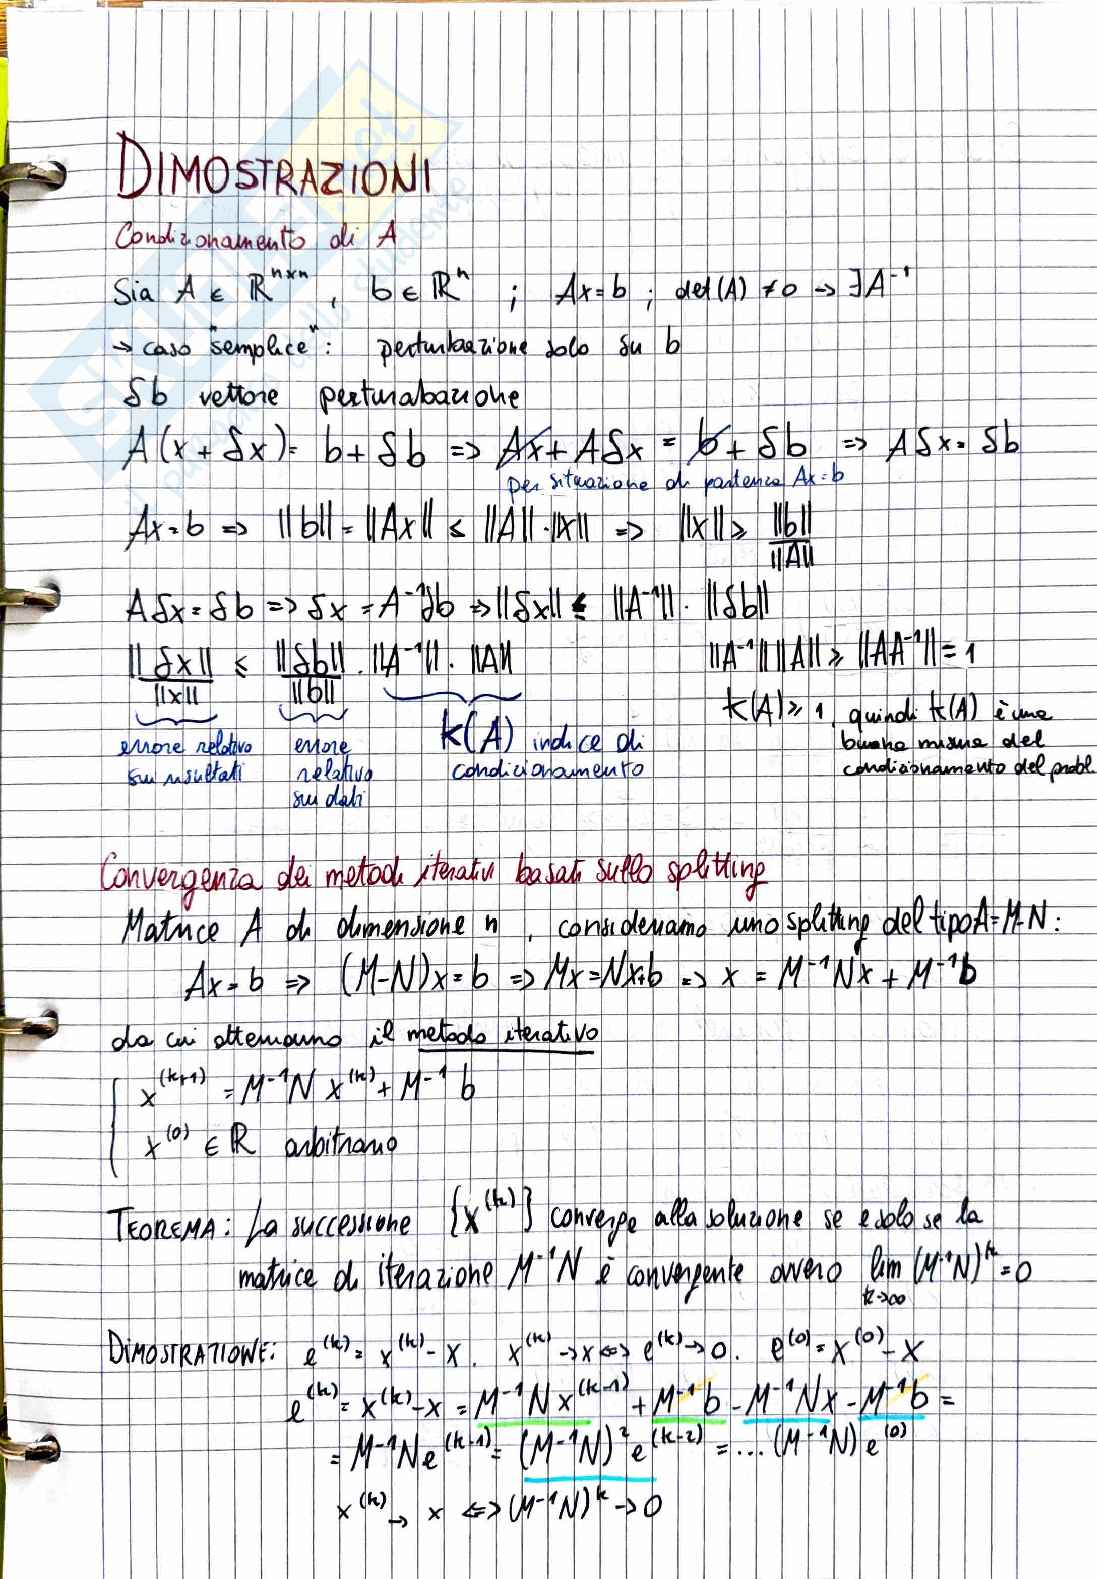 DIMOSTRAZIONI
Condizionamento di A
Sia A ∈ ℝⁿˣⁿ , b ∈ ℝⁿ ; Ax = b ; det(A) ≠ 0 → ∃A⁻¹
→ caso "semplice": perturbazione solo su b
δb vettore perturabazione
A(x + δx) = b + δb => Ax + Aδx = b + δb => Aδx = δb
per situazione di partenza Ax = b
Ax = b => ||b|| = ||Ax|| ≤ ||A|| · ||x|| => ||x|| ≥ ||b|| / ||A||
Aδx = δb => δx = A⁻¹δb => ||δx|| ≤ ||A⁻¹|| · ||δb||
||δx|| / ||x|| ≤ ||δb|| / ||b|| · ||A⁻¹|| · ||A|| ||A⁻¹|| ||A|| ≥ ||AA⁻¹|| = 1
errore relativo sui risultati
errore relativo sui dati
k(A) indice di condicionamento
k(A) ≥ 1, quindi k(A) è una
buona misura del
condicionamento del probl.
Convergenza dei metodi iterativi basati sullo splitting
Matrice A di dimensione n , consideriamo uno splitting del tipo A = M-N :
Ax = b => (M-N)x = b => Mx = Nx+b => x = M⁻¹Nx + M⁻¹b
da cui otteniamo il metodo iterativo
x⁽ᵏ⁺¹⁾ = M⁻¹N x⁽ᵏ⁾ + M⁻¹ b
x⁽⁰⁾ ∈ ℝ arbitrario
TEOREMA: La successione {x⁽ᵏ⁾} converge alla soluzione se e solo se la
matrice di iterazione M⁻¹N è convergente ovvero lim k→∞ (M⁻¹N)ᵏ = 0
DIMOSTRAZIONE: e⁽ᵏ⁾ = x⁽ᵏ⁾ - x . x⁽ᵏ⁾ → x <=> e⁽ᵏ⁾ → 0 . e⁽⁰⁾ = x⁽⁰⁾ - x
e⁽ᵏ⁾ = x⁽ᵏ⁾ - x = M⁻¹N x⁽ᵏ⁻¹⁾ + M⁻¹b - M⁻¹Nx - M⁻¹b =
= M⁻¹N e⁽ᵏ⁻¹⁾ = (M⁻¹N)² e⁽ᵏ⁻²⁾ = ... (M⁻¹N) e⁽⁰⁾
x⁽ᵏ⁾ → x <=> (M⁻¹N)ᵏ → 0